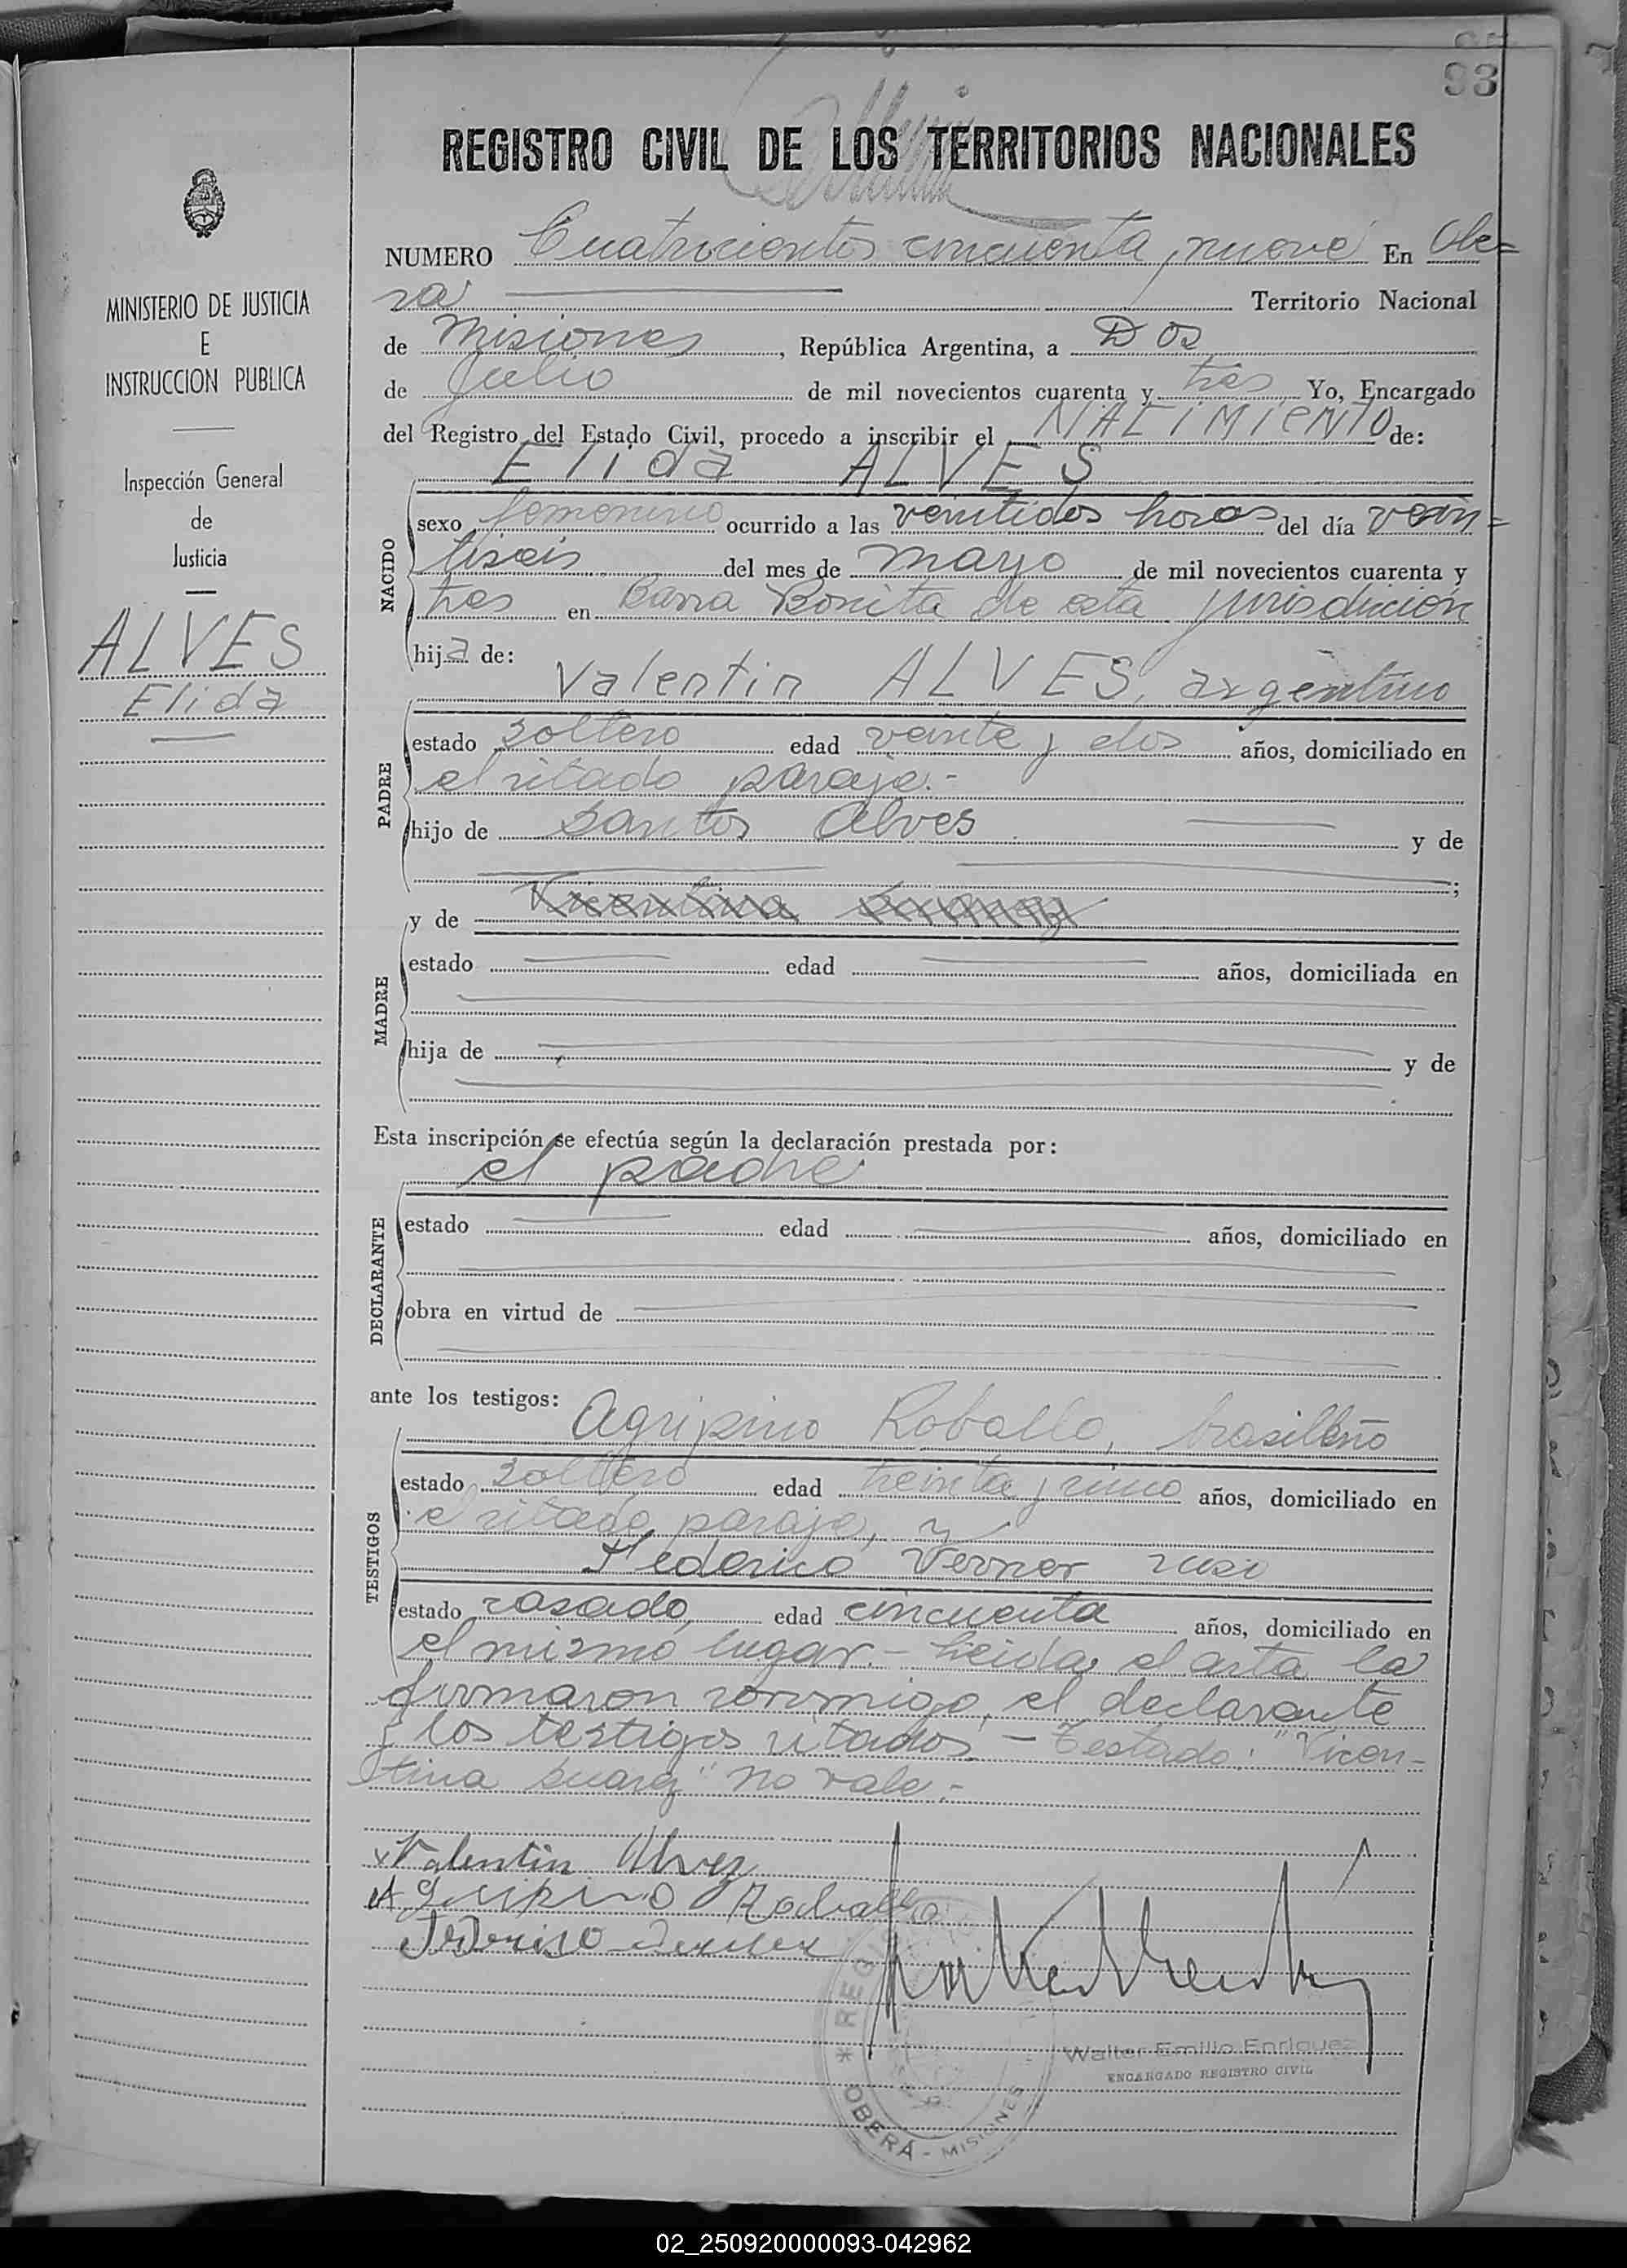 93
REGISTRO CIVIL DE LOS TERRITORIOS NACIONALES
NUMERO Cuatrocientos cincuenta y nueve En Obe=
rá Territorio Nacional
de Misiones, República Argentina, a Dos
de Julio de mil novecientos cuarenta y tres Yo, Encargado
del Registro del Estado Civil, procedo a inscribir el NACIMIENTO de:
Elida ALVES
NACIDO
sexo femenino ocurrido a las veintidos horas del día vein=
tiseis del mes de mayo de mil novecientos cuarenta y
tres en Barra Bonita de esta jurisdicion
hija de:
Valentin ALVES, argentino
PADRE
estado soltero edad veinte y dos años, domiciliado en
el citado paraje.-
hijo de Santos Alves y de
y de Vicentina Suarez
MADRE
estado edad años, domiciliada en
hija de y de
Esta inscripción se efectúa según la declaración prestada por:
el padre
DECLARANTE
estado edad años, domiciliado en
obra en virtud de
ante los testigos:
Agripino Roballo, brasileño
TESTIGOS
estado soltero edad treinta y cinco años, domiciliado en
el citado paraje, y
Federico Verner ruso
estado casado, edad cincuenta años, domiciliado en
el mismo lugar.- Leida el acta la
firmaron conmigo, el declarante
y los testigos citados.- Testado: "Vicen-
tina Suarez" no vale.-
Valentin Alvez
Agripino Roballo
Federico
MINISTERIO DE JUSTICIA
E
INSTRUCCION PUBLICA
Inspección General
de
Justicia
ALVES
Elida
Walter Emilio Enriquez
ENCARGADO REGISTRO CIVIL
* REG
OBERÁ - MISIONES
02_250920000093-042962